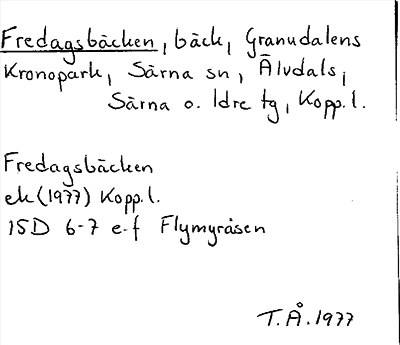 Fredagsbäcken, bäck, Granudalens
Kronopark, Särna sn, Älvdals,
Särna o. Idre tg, Kopp.l.
Fredagsbäcken
ek (1977) Kopp.l.
15D 6-7 e-f Flymyråsen
T.Å. 1977